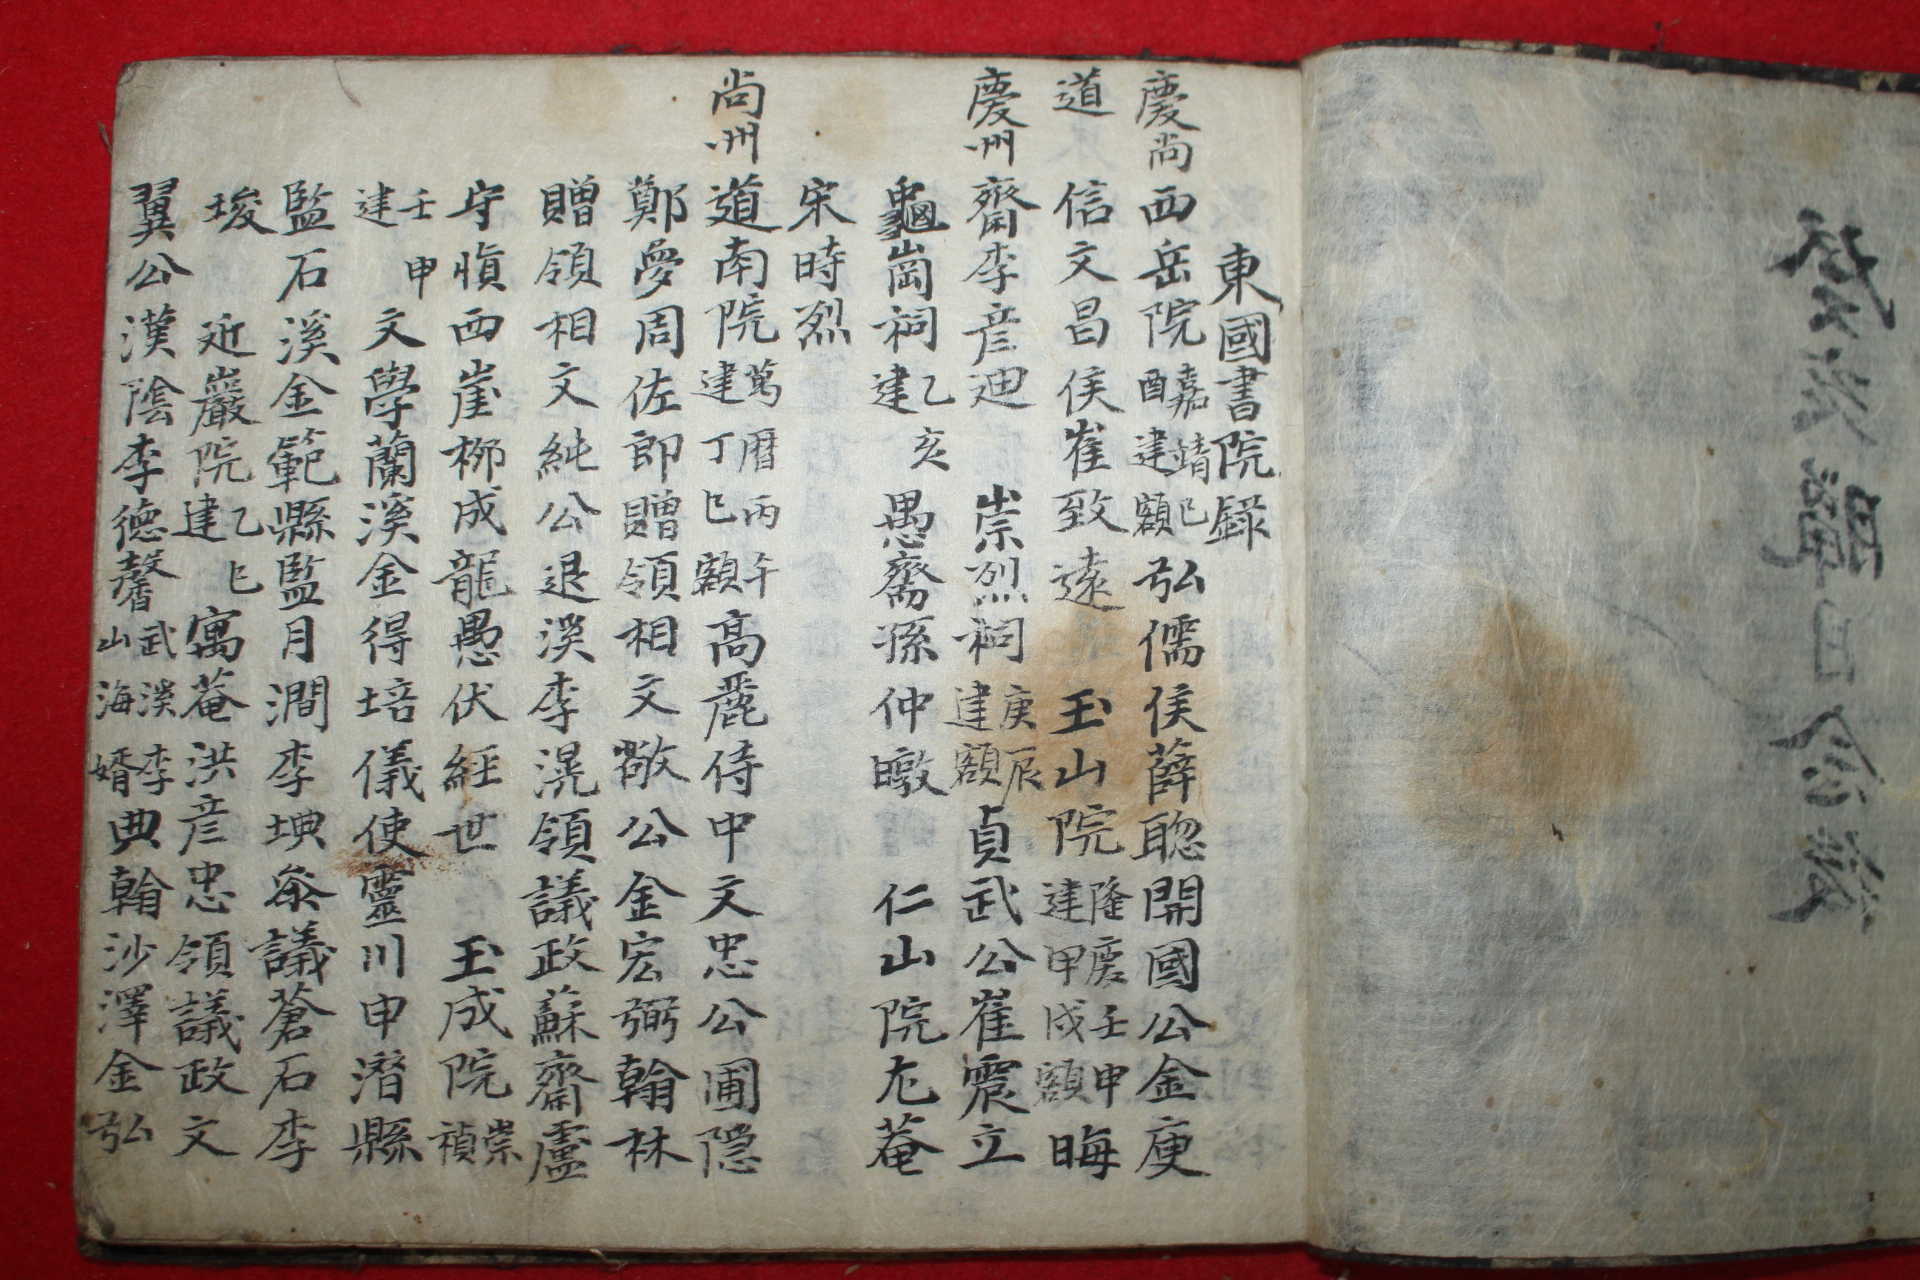 東國書院錄
慶尚 西岳院 嘉靖 酉建 己額 弘儒侯薛聰開國公金庾
道 信文昌侯崔致遠 玉山院 隆慶壬申 建甲戌額 晦
慶州 齋李彦迪 崇烈祠 庚辰 建額 貞武公崔震立
龜崗祠 乙亥 建 愚齋孫仲暾 仁山院尤菴
宋時烈
尚州 道南院 萬曆丙午 建丁巳額 高麗侍中文忠公圃隱
鄭夢周佐郎贈領相文敬公金宏弼翰林
贈領相文純公退溪李滉領議政蘇齋盧
守愼西崖柳成龍愚伏經世 玉成院 崇禎
壬申 建 文學蘭溪金得培儀使靈川申潛縣
監石溪金範縣監月澗李㙉叅議蒼石李
埈 近巖院 乙巳 建 寓菴洪彦忠領議政文
翼公漢陰李德馨 武溪李 山海婿 典翰沙澤金弘